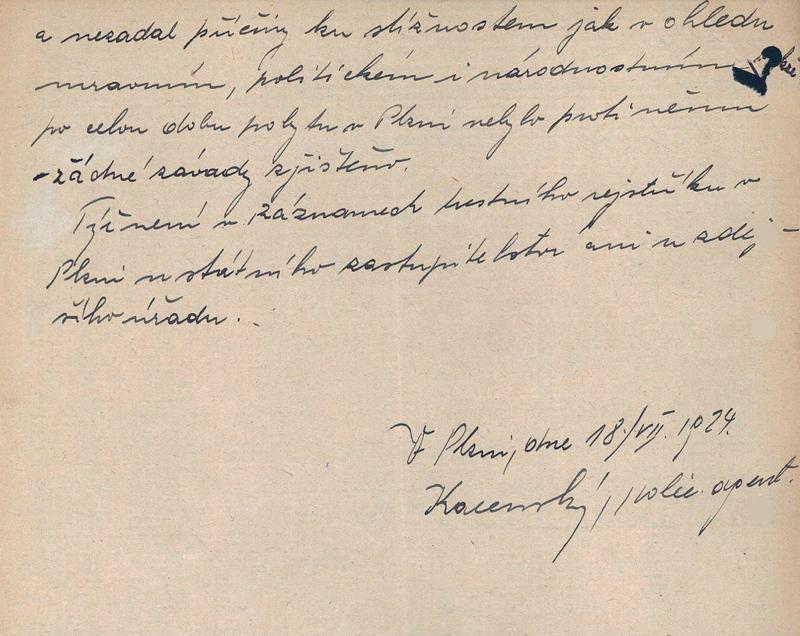 a nezadal příčiny ku stížnostem jak v ohledu
mravním, politickém i národnostním
po celou dobu pobytu v Plzni nebylo proti němu
žádné závady zjištěno.
Týž není v záznamech trestního rejstříku v
Plzni u státního zastupitelství ani u zdej-
šího úřadu.
V Plzni, dne 18/VII. 1924.
polic. agent.